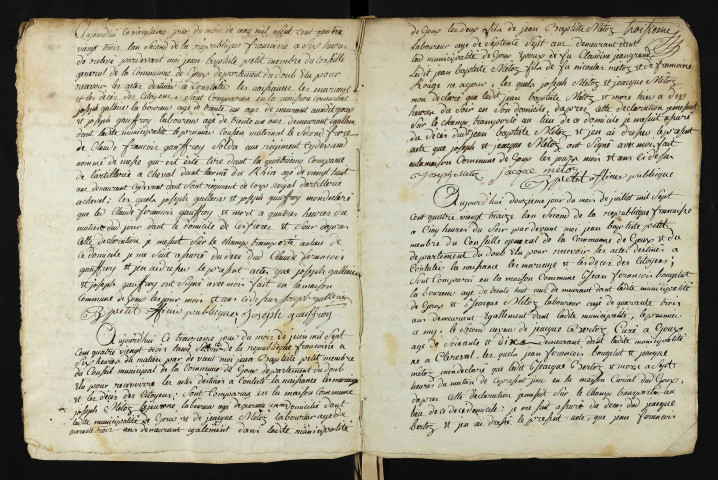 Aujourd'hui vingtième jour du mois de may mil sept cent quatre
vingt trois l'an second de la republique francoise a six heure
de relevé pardevant moi jean baptiste petit membre du conseille
general de la Commune de Goux departement du doubs Elu pour
recevoir les actes destinés a Constater les naissance les mariage
et les décès des citoyens, sont comparus en la maison commune
joseph gullier laboureur age de trente un ans demeurant audit goux
et joseph gauffroy laboureur age de trente un ans, demeurant egallement
dans ladite municipalité le premier cousin maternel le second frere
de Claude francois gauffroy soldat au regiment cydevant
nommé de mefse qui est été tiré dans la quatrieme compagnie
de lartillerie a cheval dans larmé du Rhin age de vingt huit
ans demeurant cydevant dans regiment de corps royal dartillerie
acheval; les quels joseph gullier et joseph gauffroy mon declaré
que led Claude francois gauffroy et mort a quatres heures du
matin dud jour dans le domicile de et d'apres
cette declaration je me suis sur le champ transporté au lieu de
ce domicile je me suis assuré du decès dud Claude francois
gauffroy et jen ai dressé le present acte, que joseph gullier
et joseph gauffroy ont signé avec moi fait en la maison
Commune de Goux les jour mois et ans ci dessus joseph gullier
JB petit officier publique joseph gauffroy
Aujourd'hui Ce treizieme jour du mois de juin mil sept
cent quatre vingt treize lan second de la republique francoise a
six heures du matin par devant moi jean baptiste petit membre
du Conseil municipal de la Commune de Goux departement du doubs
Elu pour recevoire les actes destinés a Constaté les naissance les mariages
et les décès des citoyens; sont comparus en la maison commune
joseph Métoz laboureur age de ans domicilié dans
ladite municipalité de Goux et de jacque Métoz laboureur age de
quarante trois ans demeurant egalement dans ladite municipalité
de Goux les deux fils de jean baptiste Métoz troisieme
laboureur age de septente sept ans demeurant dans
ladite municipalité de Goux Epoux de fu Claudine jeangrand
Ledit jean baptiste Métoz fils de fu nicolas métoz et de francoise
Rouge ne agoux; les quels joseph Métoz et jacque Métoz
mon declaré que ledit jean baptiste Métoz et mort hier a dix
heures du soir en son domicile, dapres cette declaration je me suis
sur le champ transporté au lieu de ce domicile je me suis assuré
du décès dud jean baptiste Métoz et jen ai dressé le present
acte que joseph et jacque Métoz ont signé avec moi fait
en la maison Commune de Goux les jour mois et ans ci dessus
Joseph Metoz jacque métoz
JB petit officier publique
Aujourd'hui douzieme jour du mois de juillet mil sept
cent quatre vingt treize lan second de la republique francoise
a cinq heures du soir par devant moi jean baptiste petit
membre du Conseille general de la Commune de Goux
departement du doubs Elu pour recevoir les actes destinés a
Constaté la naissance les mariage et les décès des citoyens;
sont Comparus en la maison commune jean francois bougelot
laboureur age de trente huit ans demeurant dans ladite municipalité
de Goux et jacque Métoz laboureur age de quarante trois
ans demeurant egallement dans ladite municipalité, le premier
a my, le second neveu de jacque Bertoz Curé a Goux
age de soixante et dixe demeurant dans ladite municipalité
ne a Clerval, les quels jean francois bougelot et jacque
métoz mon declaré que ledit jacque Bertoz et mort a sept
heures du matin de ce present jour en la maison Curial dud Goux,
dapres cette declaration je me suis sur le champ transporté au
lieu de ce domicile: je me suis assuré du décès dud jacque
bertoz et jen ai dressé le present acte, que jean francois